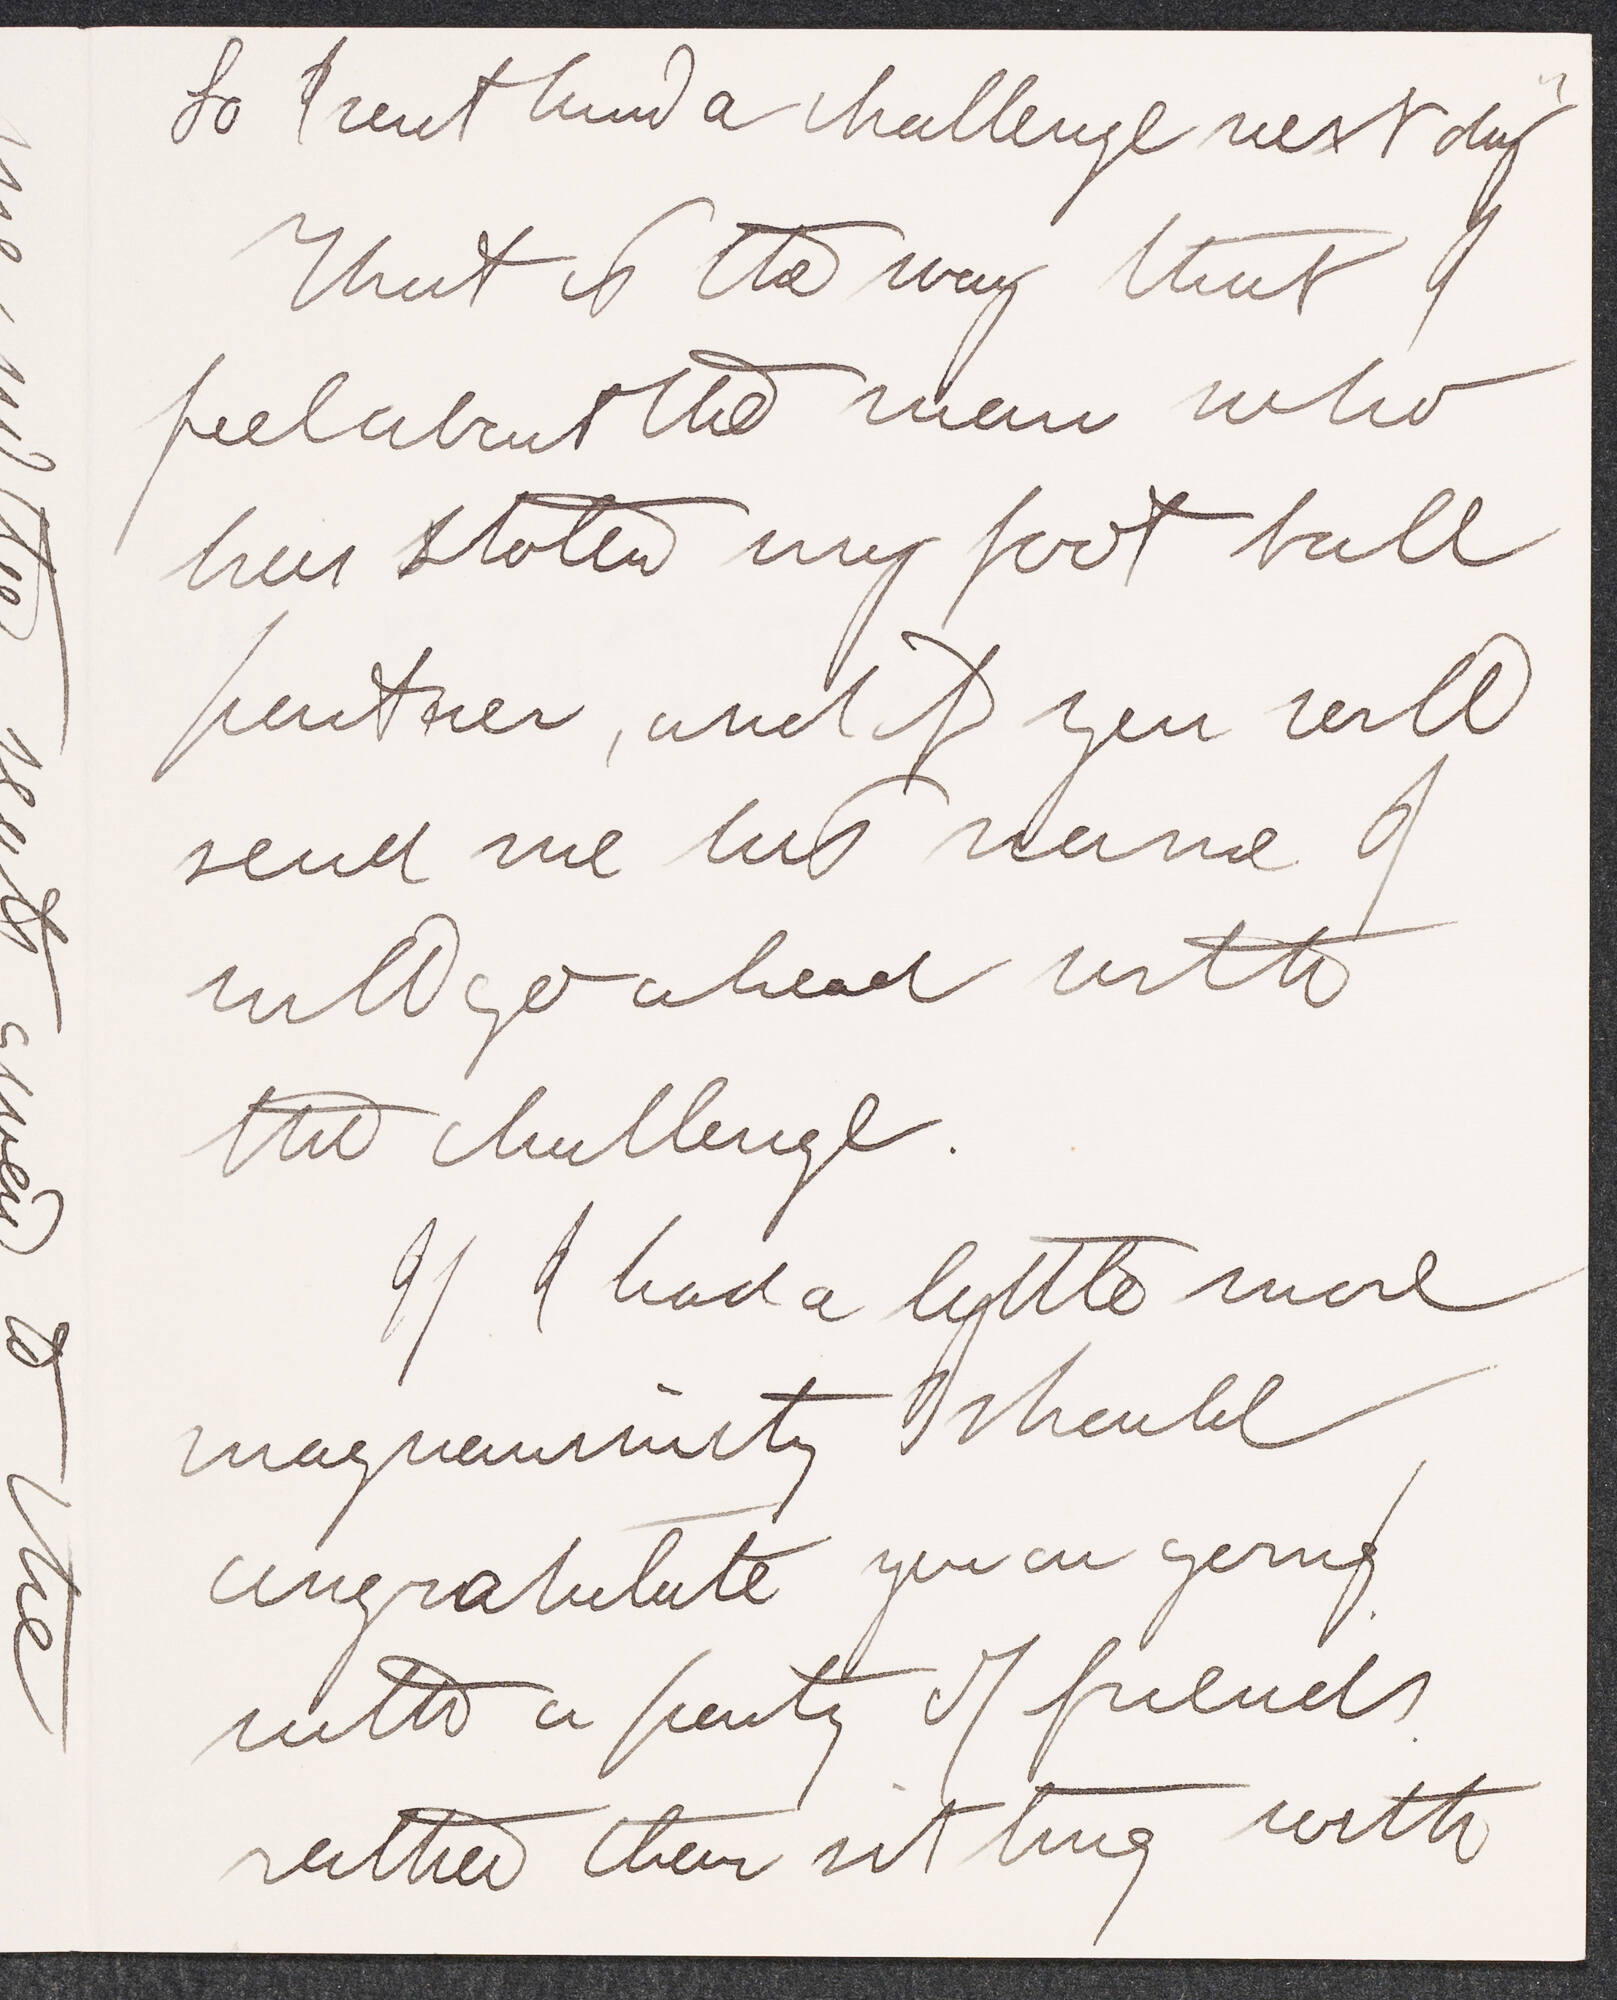 So I sent him a challenge next day"
That is the way that I
feel about the man who
has stolen my foot ball
partner, and if you will
send me his name I
will go ahead with
the challenge.
If I had a lyttle more
magnanimity I should
congratulate you on going
with a party of friends
rather than sitting with
to the